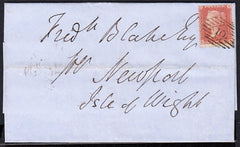 Fredk Blake Esq
Newport
Isle of Wight